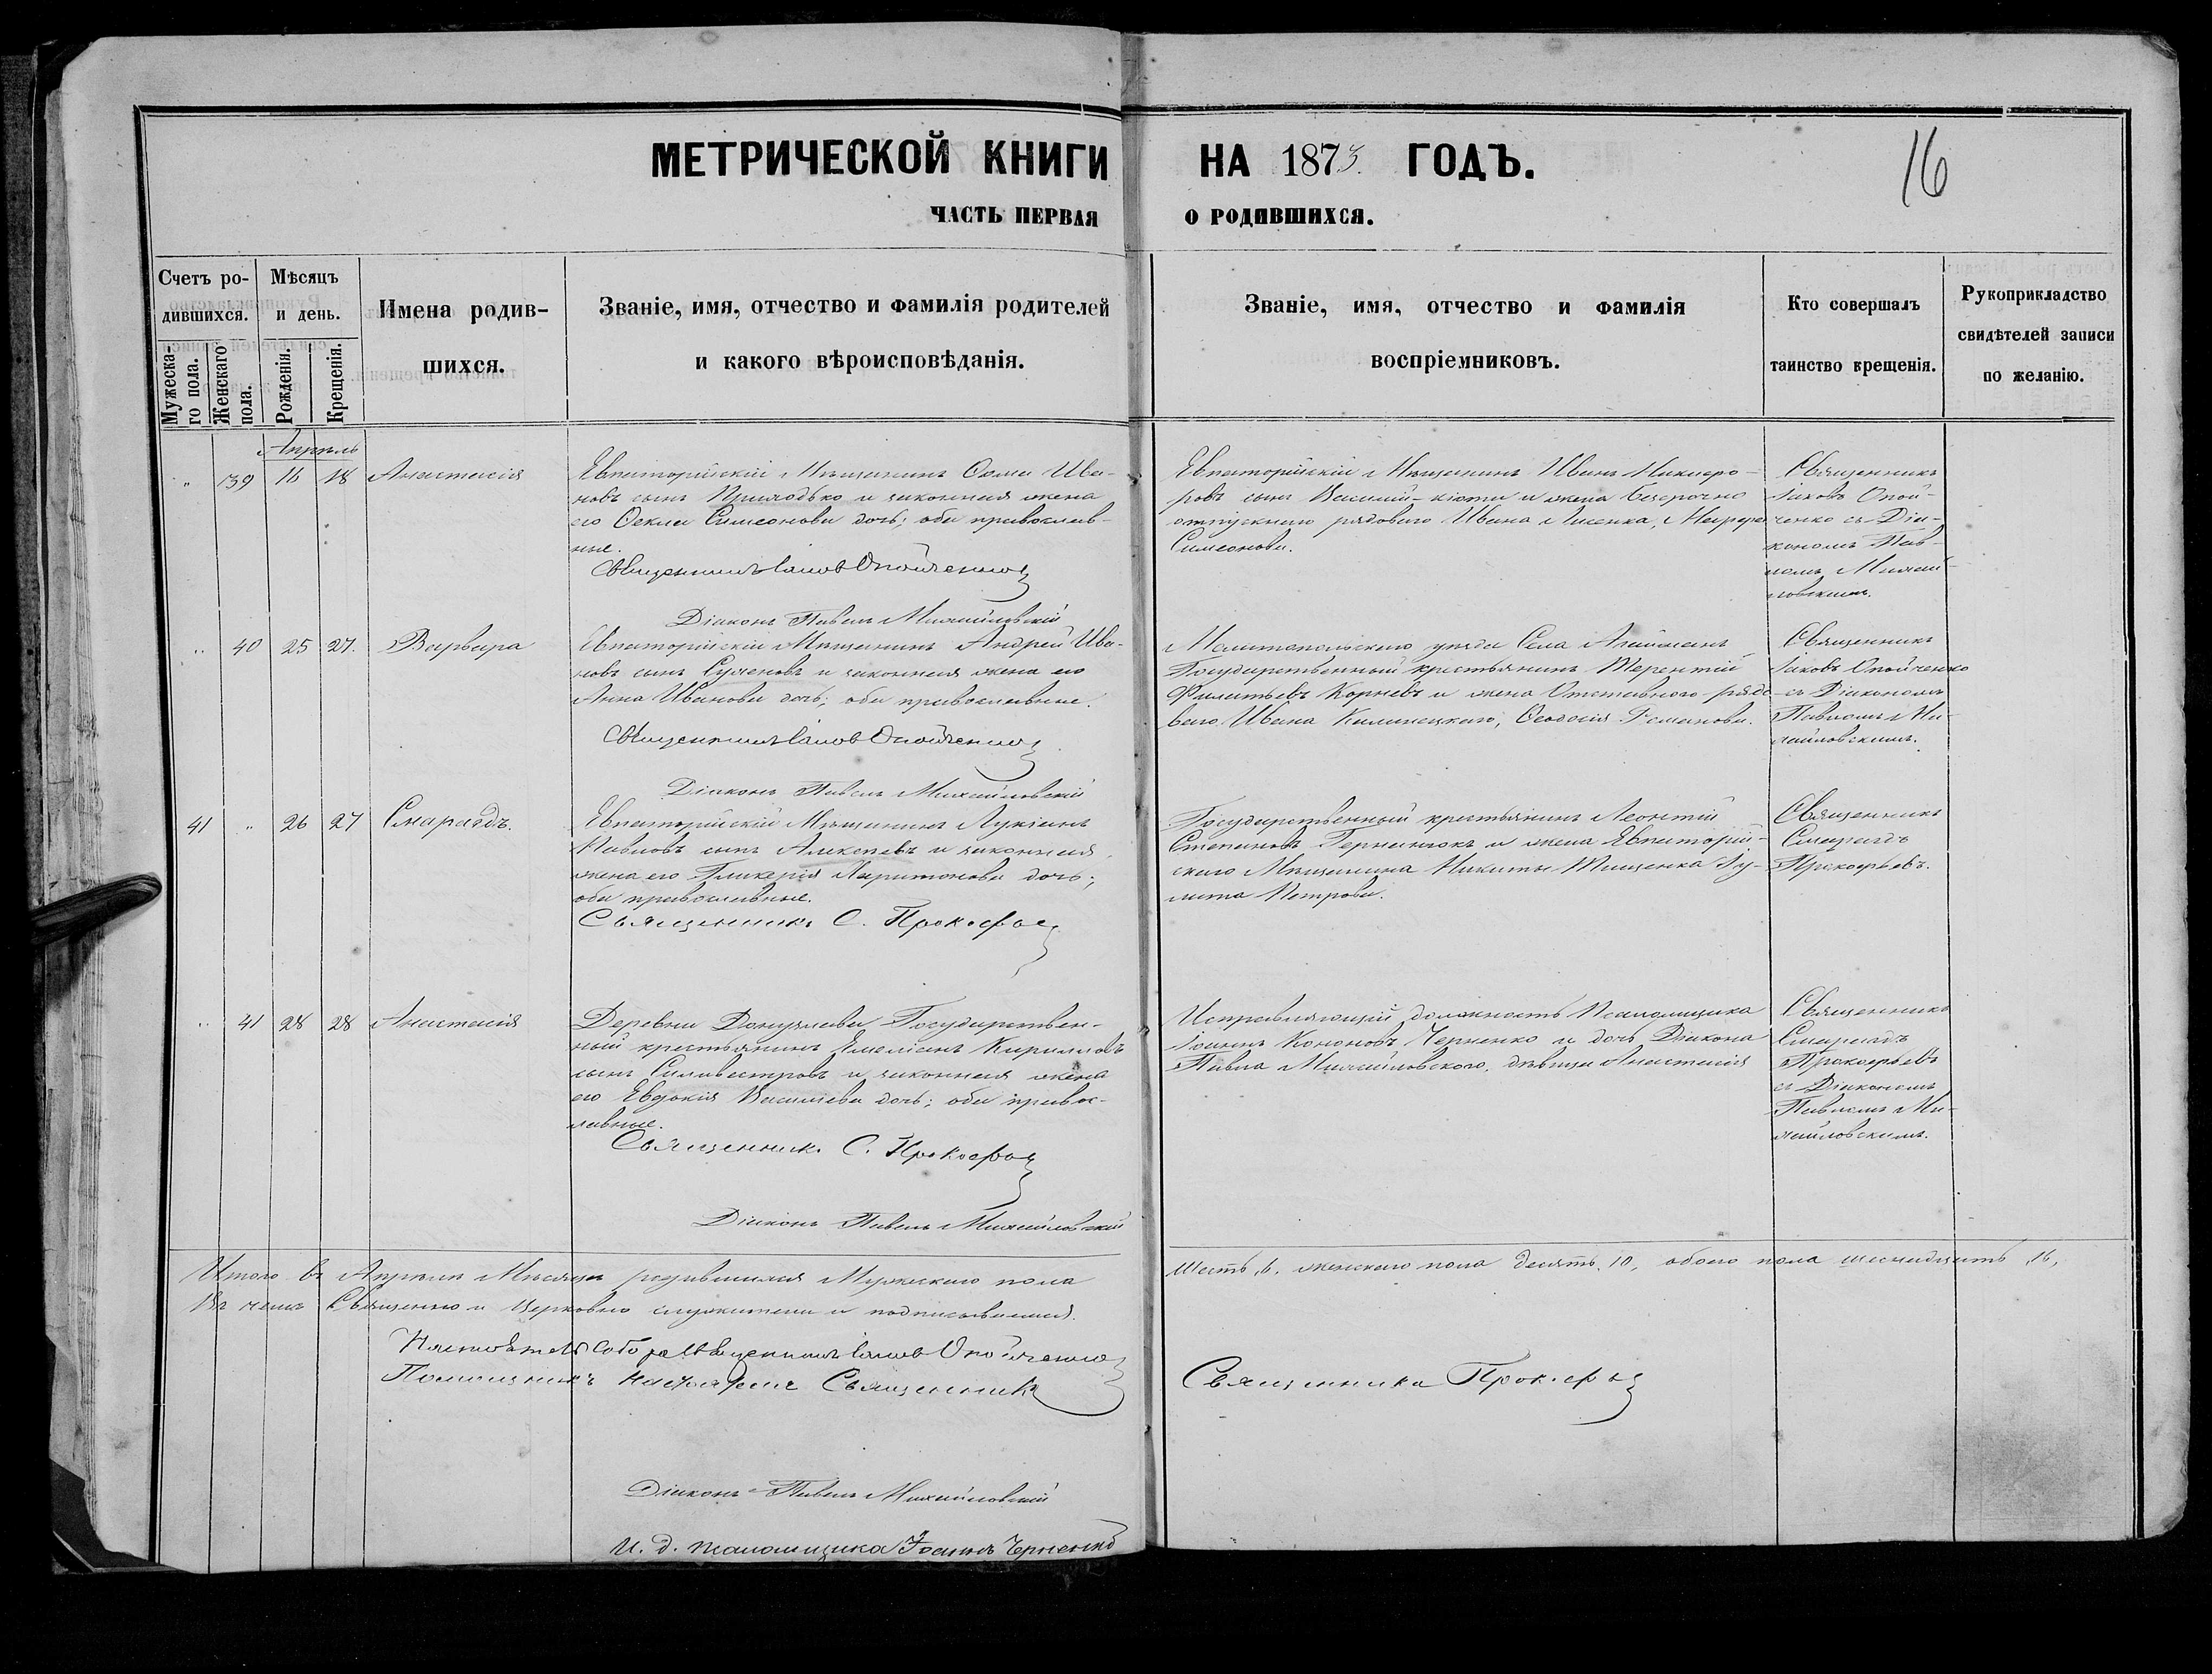 МЕТРИЧЕСКОЙ КНИГИ НА 1873 ГОДЪ.
16
ЧАСТЬ ПЕРВАЯ О РОДИВШИХСЯ.
Счетъ ро-
дившихся.
Мужеска-
го пола.
Женскаго
пола.
Мѣсяцъ
и день.
Рожденія.
Крещенія.
Имена родив-
шихся.
Званіе, имя, отчество и фамилія родителей
и какого вѣроисповѣданія.
Званіе, имя, отчество и фамилія
воспріемниковъ.
Кто совершалъ
таинство крещенія.
Рукоприкладство
свидѣтелей записи
по желанію.
Апрѣль
" 39 16 18 Анастасія
Евпаторійскій Мѣщанинъ Ѳома Ива-
новъ сынъ Приходько и законная жена
его Ѳекла Симеонова дочь; оба православ-
ные.
Священникъ Іаковъ Опойченко
Діаконъ Павелъ Михайловскій
Евпаторійскій Мѣщанинъ Иванъ Никифо-
ровъ сынъ и жена безсрочно
отпускнаго рядоваго Ивана Лисенка,
Симеонова.
Священникъ
Іаковъ Опой-
ченко съ Діа-
кономъ Пав-
ломъ Михай-
ловскимъ.
" 40 25 27. Варвара
Евпаторійскій Мѣщанинъ Андрей Ива-
новъ сынъ и законная жена его
Анна Иванова дочь; оба православные.
Священникъ Іаковъ Опойченко
Діаконъ Павелъ Михайловскій
Мелитопольскаго уѣзда Села
Государственный крестьянинъ Терентій
Корневъ и жена Отставного рядо-
ваго Ивана Калинецкаго, Ѳеодосія
Священникъ
Іаковъ Опойченко
съ Діакономъ
Павломъ Ми-
хайловскимъ.
41 " 26 27 Смарагдъ.
Евпаторійскій Мѣщанинъ Лукіанъ
Павловъ сынъ Алексѣевъ и законная
жена его Гликерія Харитонова дочь;
оба православные.
Священникъ С. Прокофьев
Государственный крестьянинъ Леонтій
Степановъ и жена Евпаторій-
скаго Мѣщанина Никиты Тищенка
Петрова.
Священникъ
Смарагдъ
Прокофьевъ.
" 41 28 28 Анастасія
Деревни Донузлава Государствен-
ный крестьянинъ Емеліанъ Кирилловъ
сынъ Силивестровъ и законная жена
его Евдокія Василіева дочь; оба правос-
лавные.
Священникъ С. Прокофьев
Діаконъ Павелъ Михайловскій
Исправляющій должность Псаломщика
Іоаннъ Кононовъ Черненко и дочь Діакона
Павла Михайловскаго, дѣвица Анастасія
Священникъ
Смарагдъ
Прокофьевъ
съ Діакономъ
Павломъ Ми-
хайловскимъ.
Итого въ Апрѣлѣ Мѣсяцѣ родившихся Мужескаго пола шесть, 6, женскаго пола десять, 10, обоего пола шестнадцать, 16,
Въ чемъ Священно и Церковно служители и подписываемся.
Настоятель Собора Священникъ Іаковъ Опойченко
Помощникъ Настоятеля Священникъ Прокофьев
Діаконъ Павелъ Михайловскій
И. д. псаломщика Іоаннъ Черненко